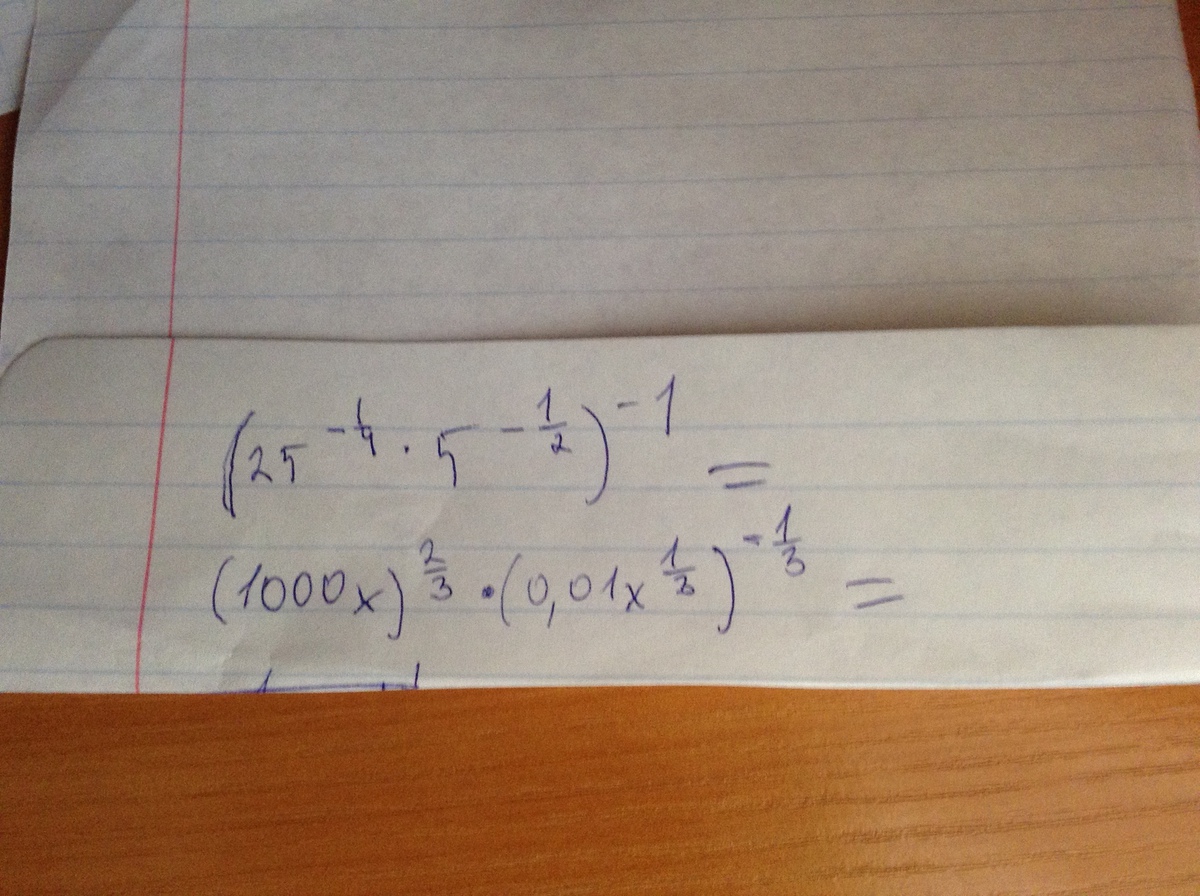 (25^{-\frac{1}{4}} · 5^{-\frac{1}{2}})^{-1} =
(1000x)^{\frac{2}{3}} · (0,01x^{\frac{1}{3}})^{-\frac{1}{3}} =